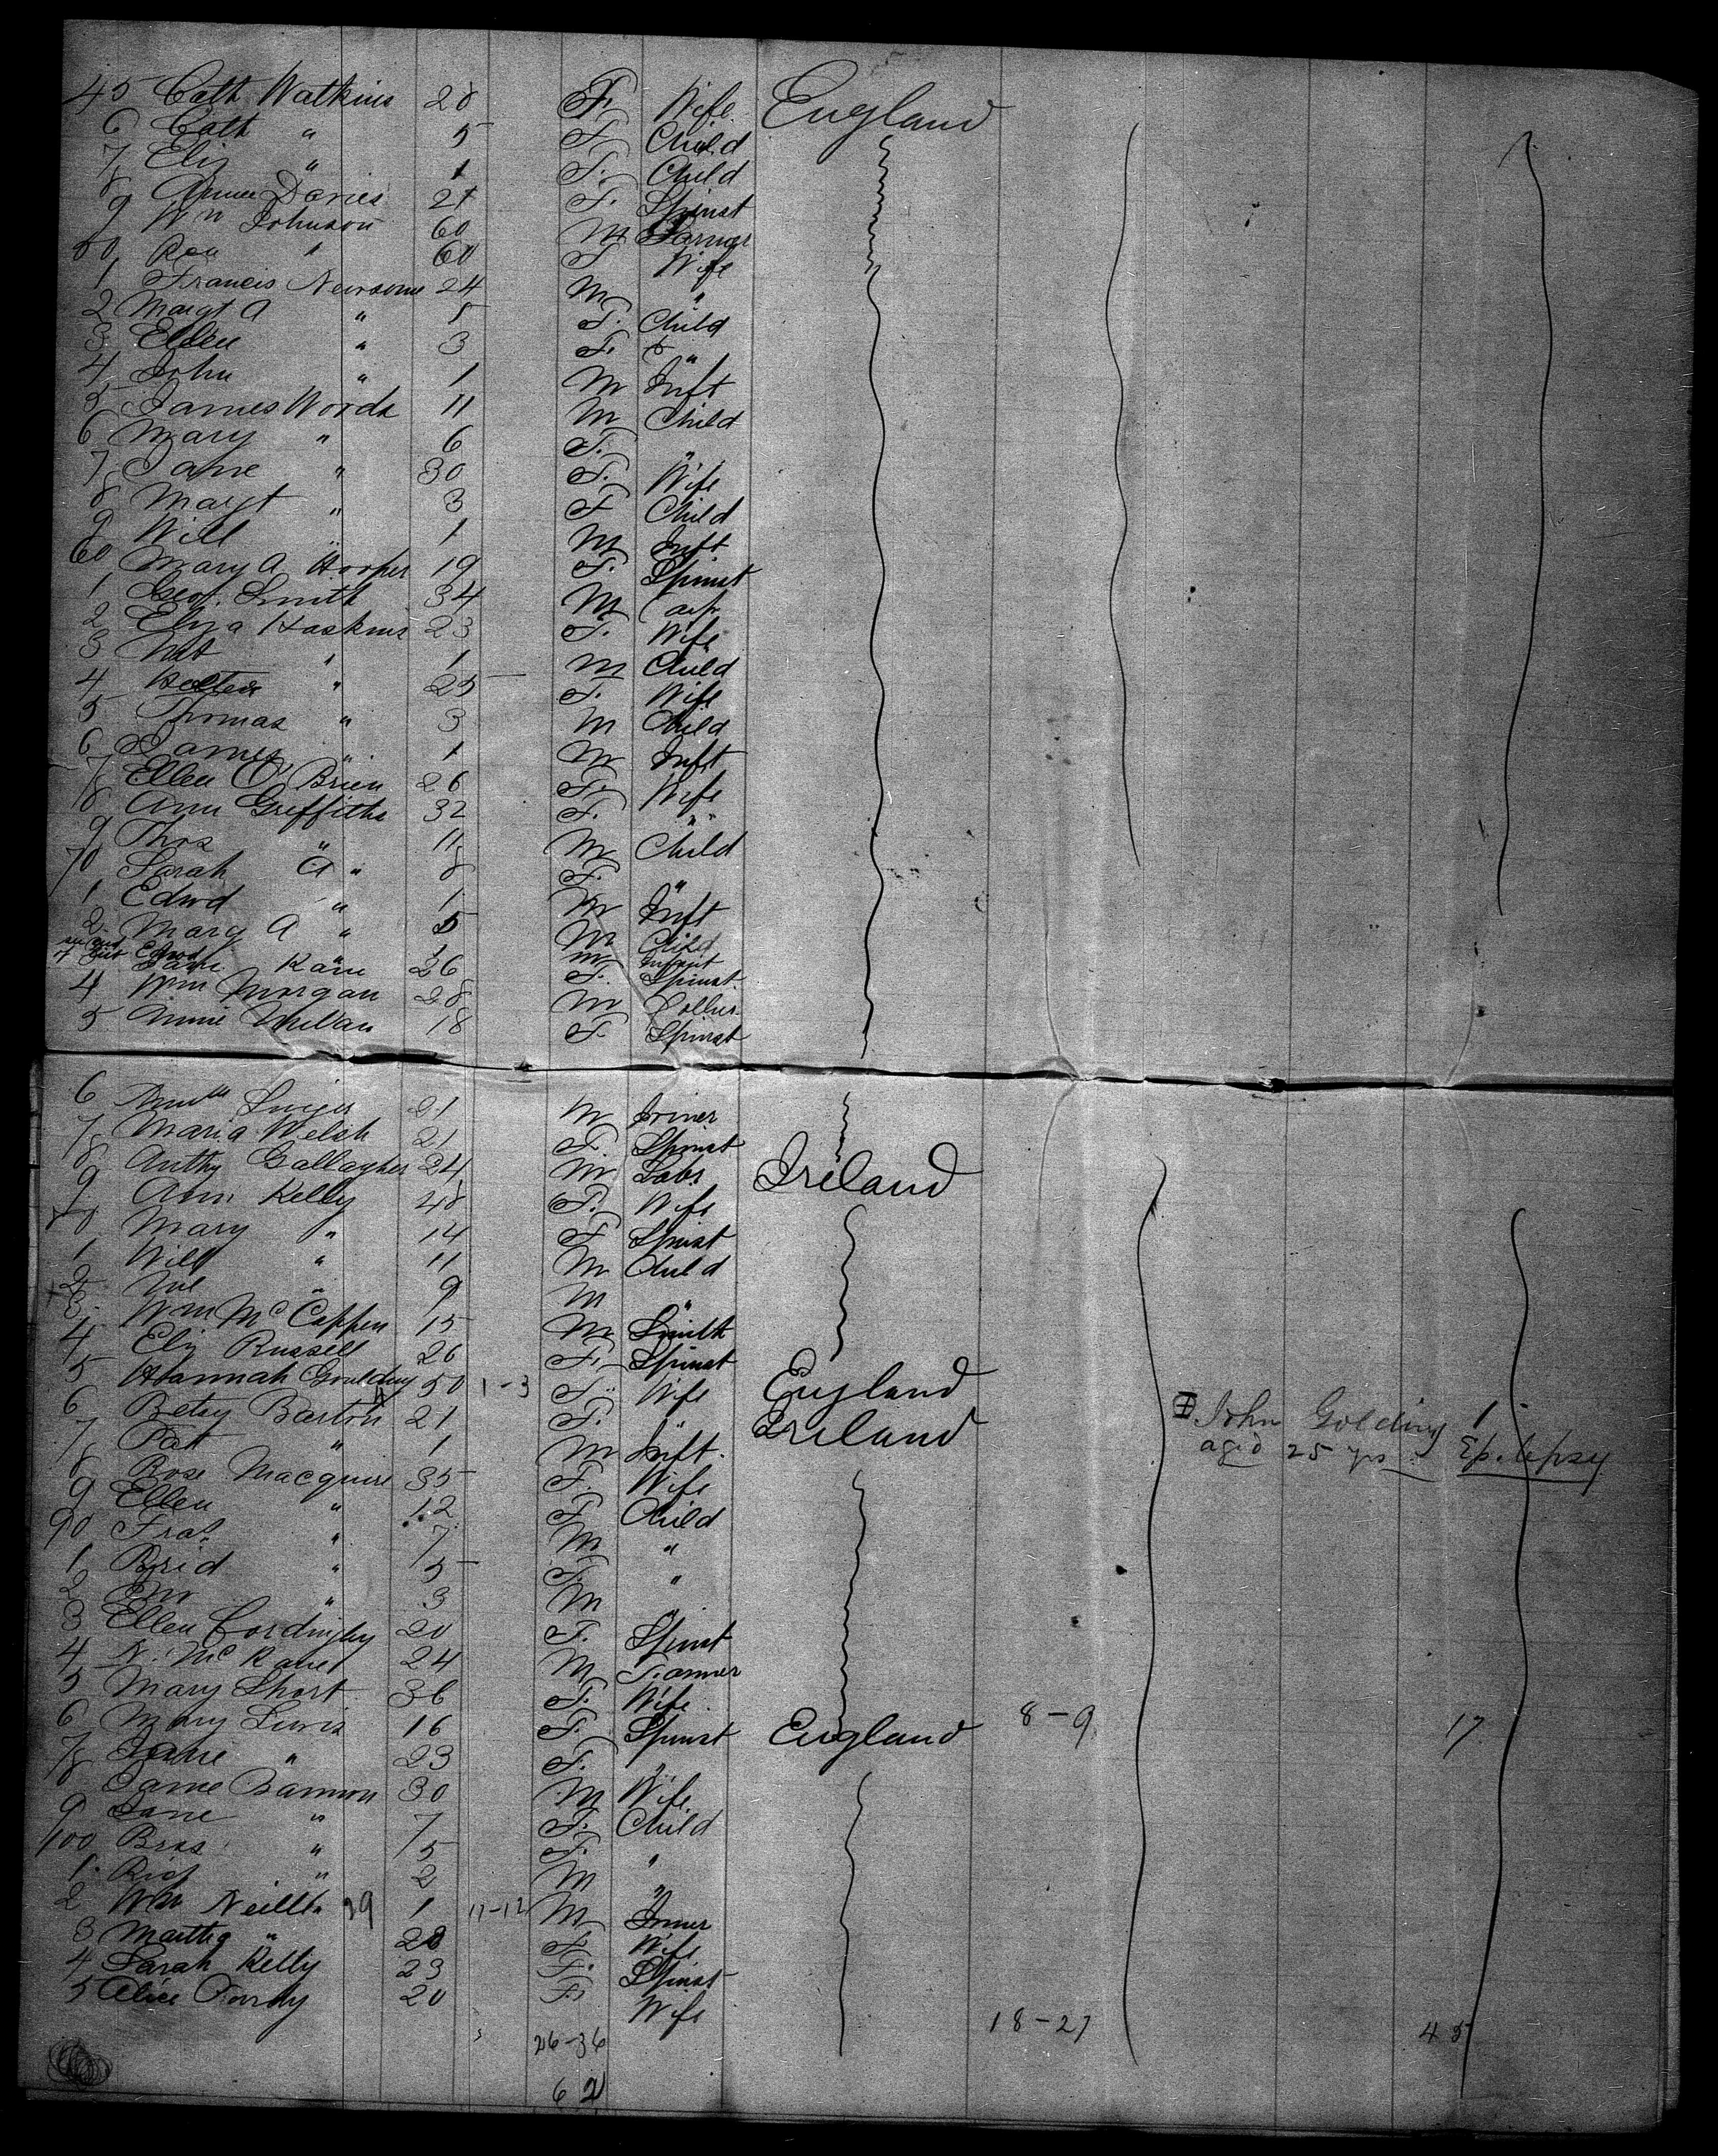 45 Cath Watkins 28 F. Wife England
6 Cath " 5 F. Child
7 Eliz " 1 F. Child
8 Annie Davies 21 F. Spinst
9 Wm Johnson 60 M Farmer
50 " 60 F Wife
1 Francis Newsome 24 M "
2 Margt A " 5 F. Child
3 Ellen " 3 F. "
4 John " 1 M Inft
5 James Woods 11 M Child
6 Mary " 6 F. "
7 Jane " 30 F. Wife
8 Margt " 3 F Child
9 Will " 1 M Inft
60 Mary A Hooper 19 F. Spinst
1 Geo. Smith 34 M Carp
2 Eliza Haskins 23 F. Wife
3 " 1 M Child
4 " 25 F. Wife
5 Thomas " 3 M Child
6 James " 1 M Inft
7 Ellen O'Brien 26 F. Wife
8 Ann Griffiths 32 F. "
9 Thos " 11 M Child
70 Sarah A " 8 F. "
1 Edwd " 1 M Inft
2 Mary A " 5 M Child
Edwd " 1 M Infant
Jane Kane 26 F. Spinst.
4 Wm Morgan 28 M Collier
5 Annie 18 F. Spinst
6 21 M Joiner
7 Maria Welsh 21 F. Spinst
8 Anthy Gallagher 24 M Labr Ireland
9 Ann Kelly 48 F. Wife
80 Mary " 14 F Spinst
1 Will " 11 M Child
2 " 9 M "
3 Wm McCappen 15 M Smith
4 Eliz Russell 26 F. Spinst
5 Hannah Goulding 50 1-3 F. Wife England
6 Betsy Barton 21 F. " Ireland John Golding 1
7 Pat " 1 M Inft. aged 25 yrs. Epilepsy
8 Rose Macquire 35 F. Wife
9 Ellen " 12 F Child
90 Fras " 7 M "
1 Brid " 5 F. "
2 " 3 M "
3 Ellen Cordingley 20 F. Spinst
4 N. 24 M Farmer
5 Mary Short 36 F. Wife
6 Mary Lewis 16 F. Spinst England 8-9 17
7 Jane " 23 F. "
8 Jane Bannon 30 M Wife
9 Jane " 7 F. Child
100 " 5 F. "
1 Rich " 2 M "
2 Wm Neill 29 1 11-12 M Joiner
3 Martha " 28 F Wife
4 Sarah Kelly 23 F. Spinst
5 Alice 20 F. Wife
26-36 18-27 45
62